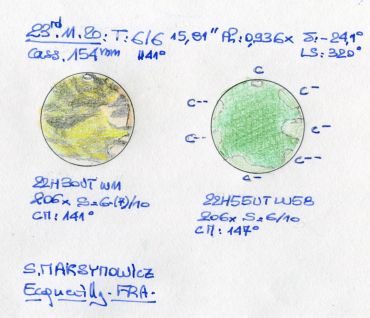 23rd.11.20: T: 6/6 15,81" Ph: 0,936x δ: -24,1°
Cass. 154mm H41° LS: 320°
C
C-- C-
C-- C-
C- C-
22H30UT W11
206x S=6-(7)/10
CM: 141°
22H55UT W58
206x S=6/10
CM: 147°
S. MAKSYMOWICZ
Ecquevilly - FRA -